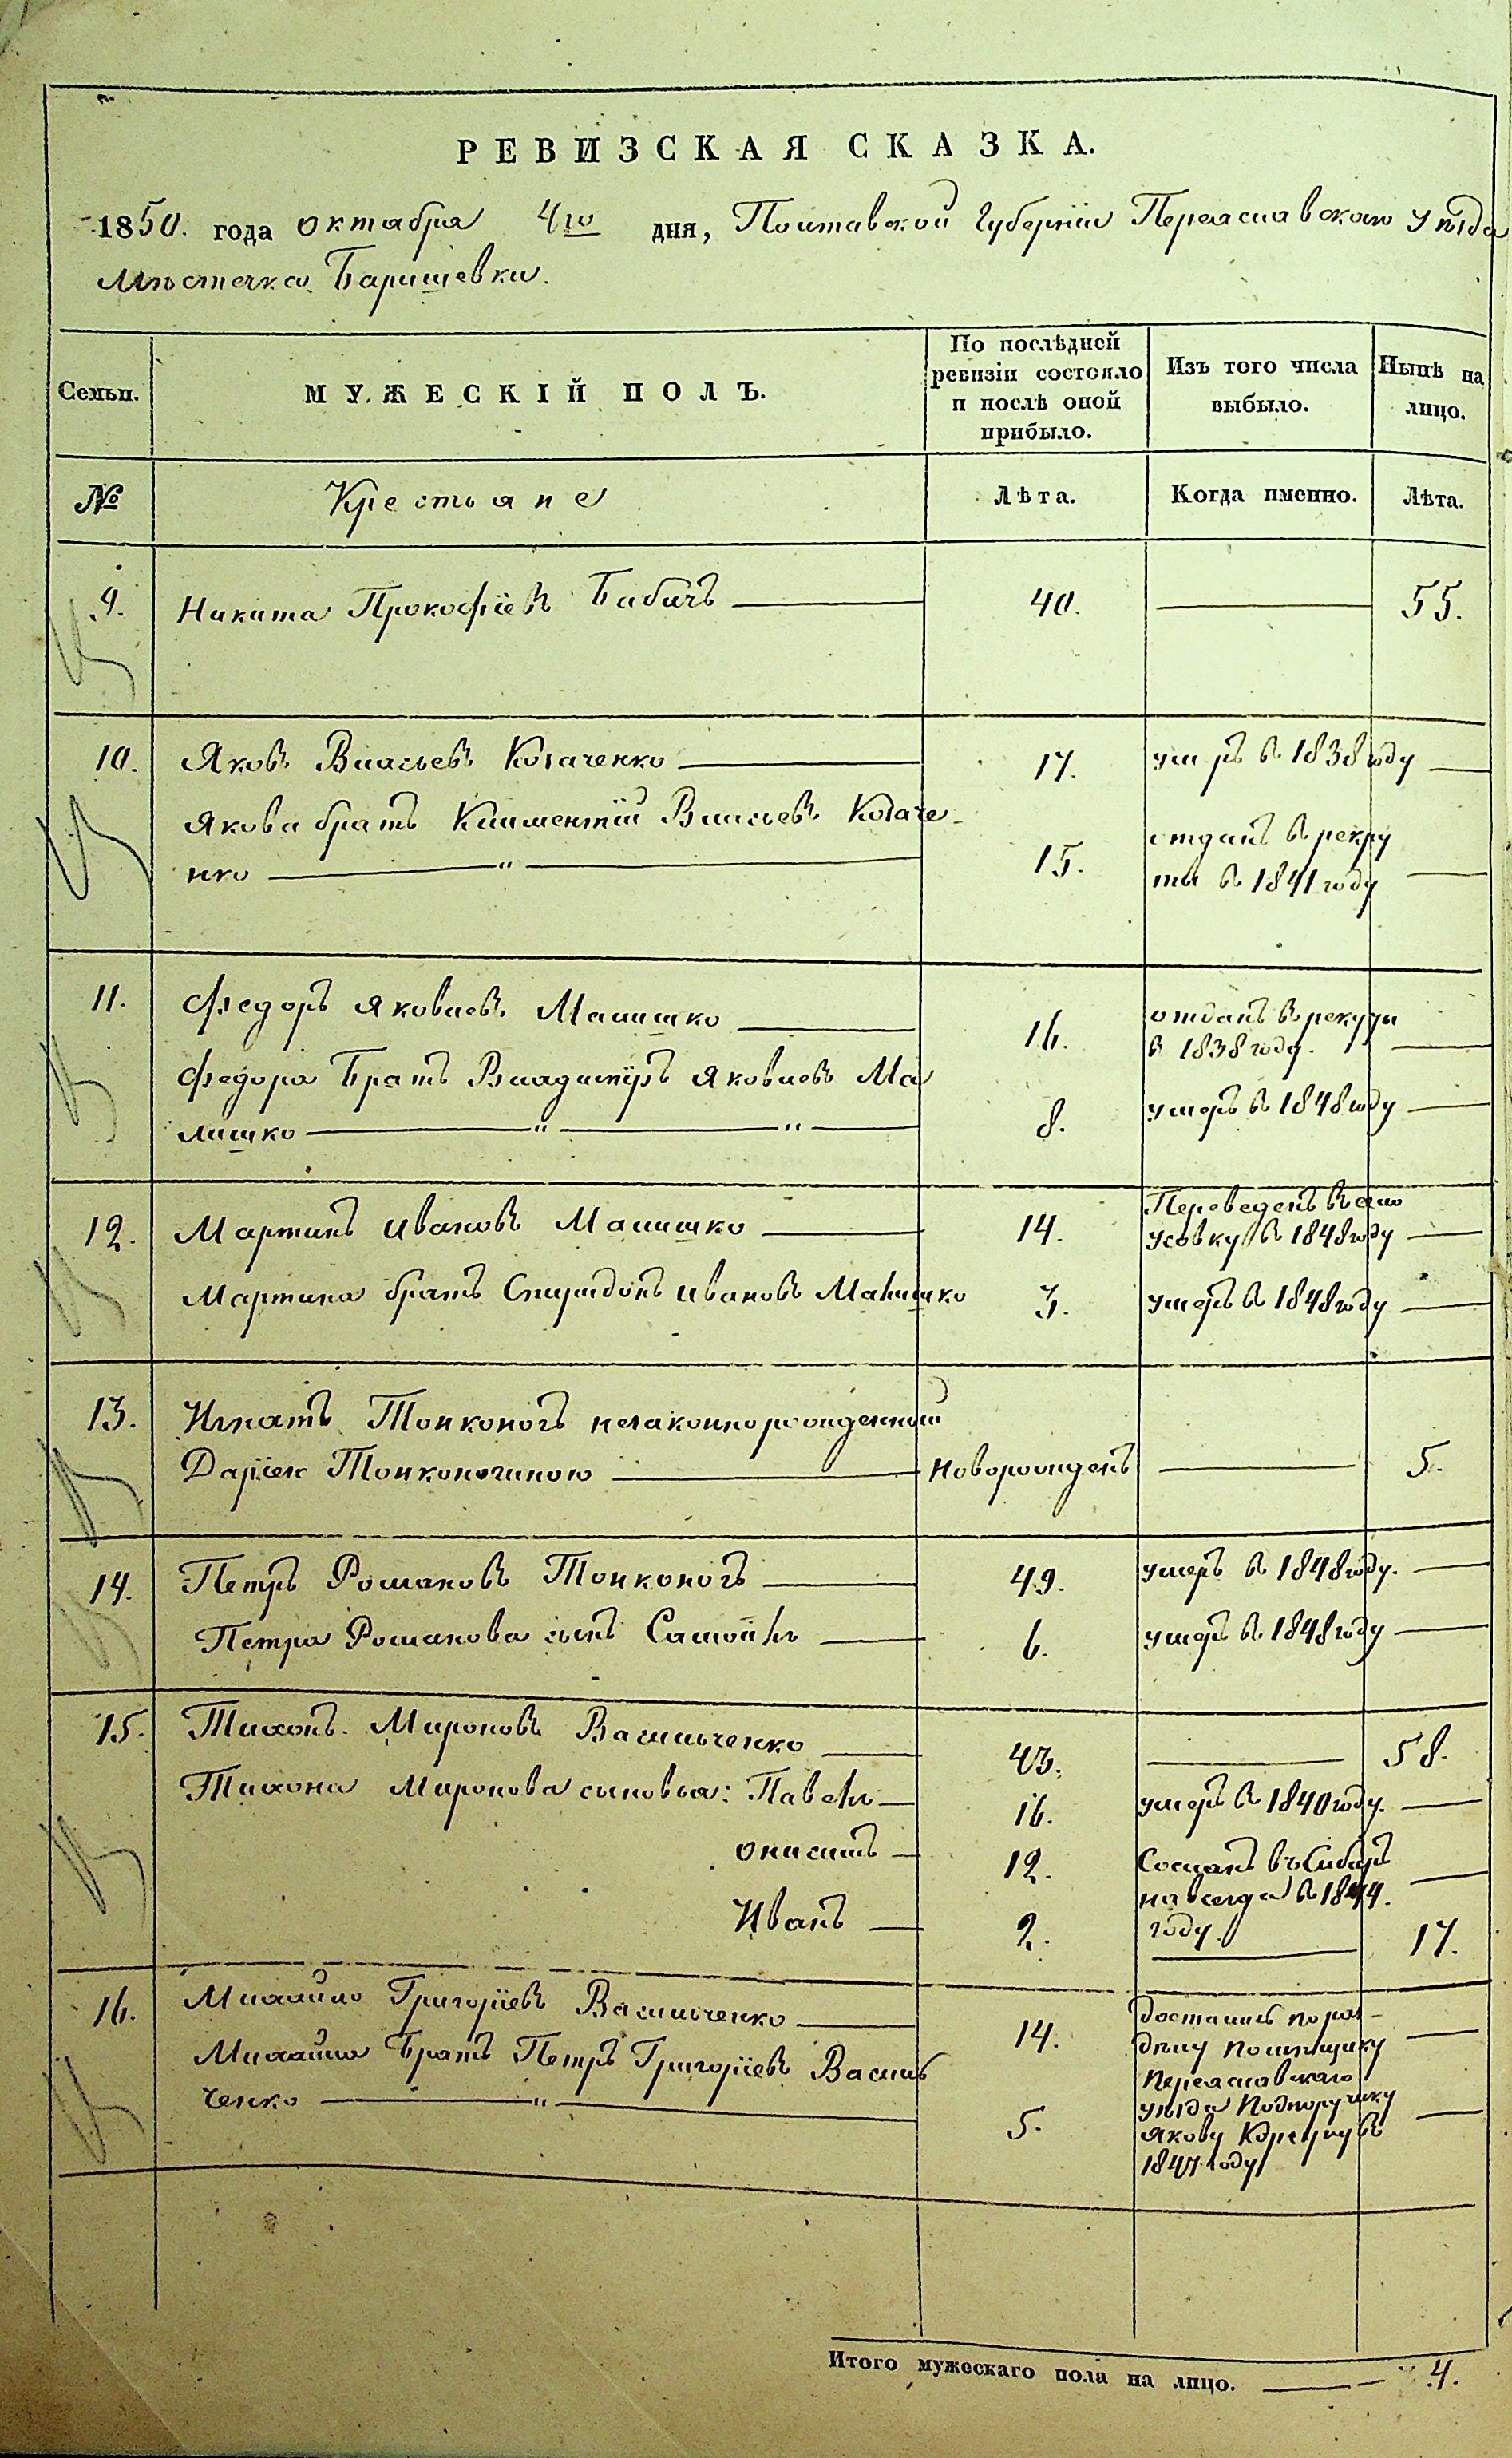 РЕВИЗСКАЯ СКАЗКА.
1850. года октабра 4го дня, Полтавской Губерніи Переяславскаго Уѣзда
Мѣстечка Баришевки.
Семьи. МУЖЕСКІЙ ПОЛЪ. По послѣдней ревизіи состояло и послѣ оной прибыло. Изъ того числа выбыло. Нынѣ на лицо.
№ Крестьяне Лѣта. Когда именно. Лѣта.
9. Никита Прокофіевъ Бабичъ 40. 55.
10. Яковъ Власьевъ Козаченко 17. умеръ въ 1838 году
Якова братъ Климентій Власьевъ Козаче-
нко 15. отданъ въ рекру
ты въ 1841 году
11. Федоръ Яковлевъ Малишко 16. отданъ въ рекруты
в 1838 году.
Федора Братъ Владиміръ Яковлевъ Ма
лишко 8. умеръ въ 1848 году
12. Мартинъ Ивановъ Малишко 14. Переведенъ въ село
Усовку въ 1848 году
Мартина братъ Спиридонъ Ивановъ Малишко 3. умеръ въ 1848 году
13. Игнатъ Тонконогъ незаконнорожденный
Даріею Тонконогиною Новорожденъ 5.
14. Петръ Романовъ Тонконогъ 49. умеръ въ 1848 году.
Петра Романова сынъ Самойлъ 6. умеръ въ 1848 году
15. Тихонъ Мироновъ Васильченко 43. 58.
Тихона Миронова сыновья: Павелъ 16. умеръ въ 1840 году.
Онисимъ 12. Сосланъ въ Сибирь
навсегда въ 1844.
году.
Иванъ 2. 17.
16. Михайло Григоріевъ Васильченко 14. Достались по раз-
дѣлу помѣщику
Михайла Братъ Петръ Григоріевъ Василь
ченко 5. Переяславскаго
уѣзда Подпоручику
Якову въ
году
Итого мужескаго пола на лицо. 4.